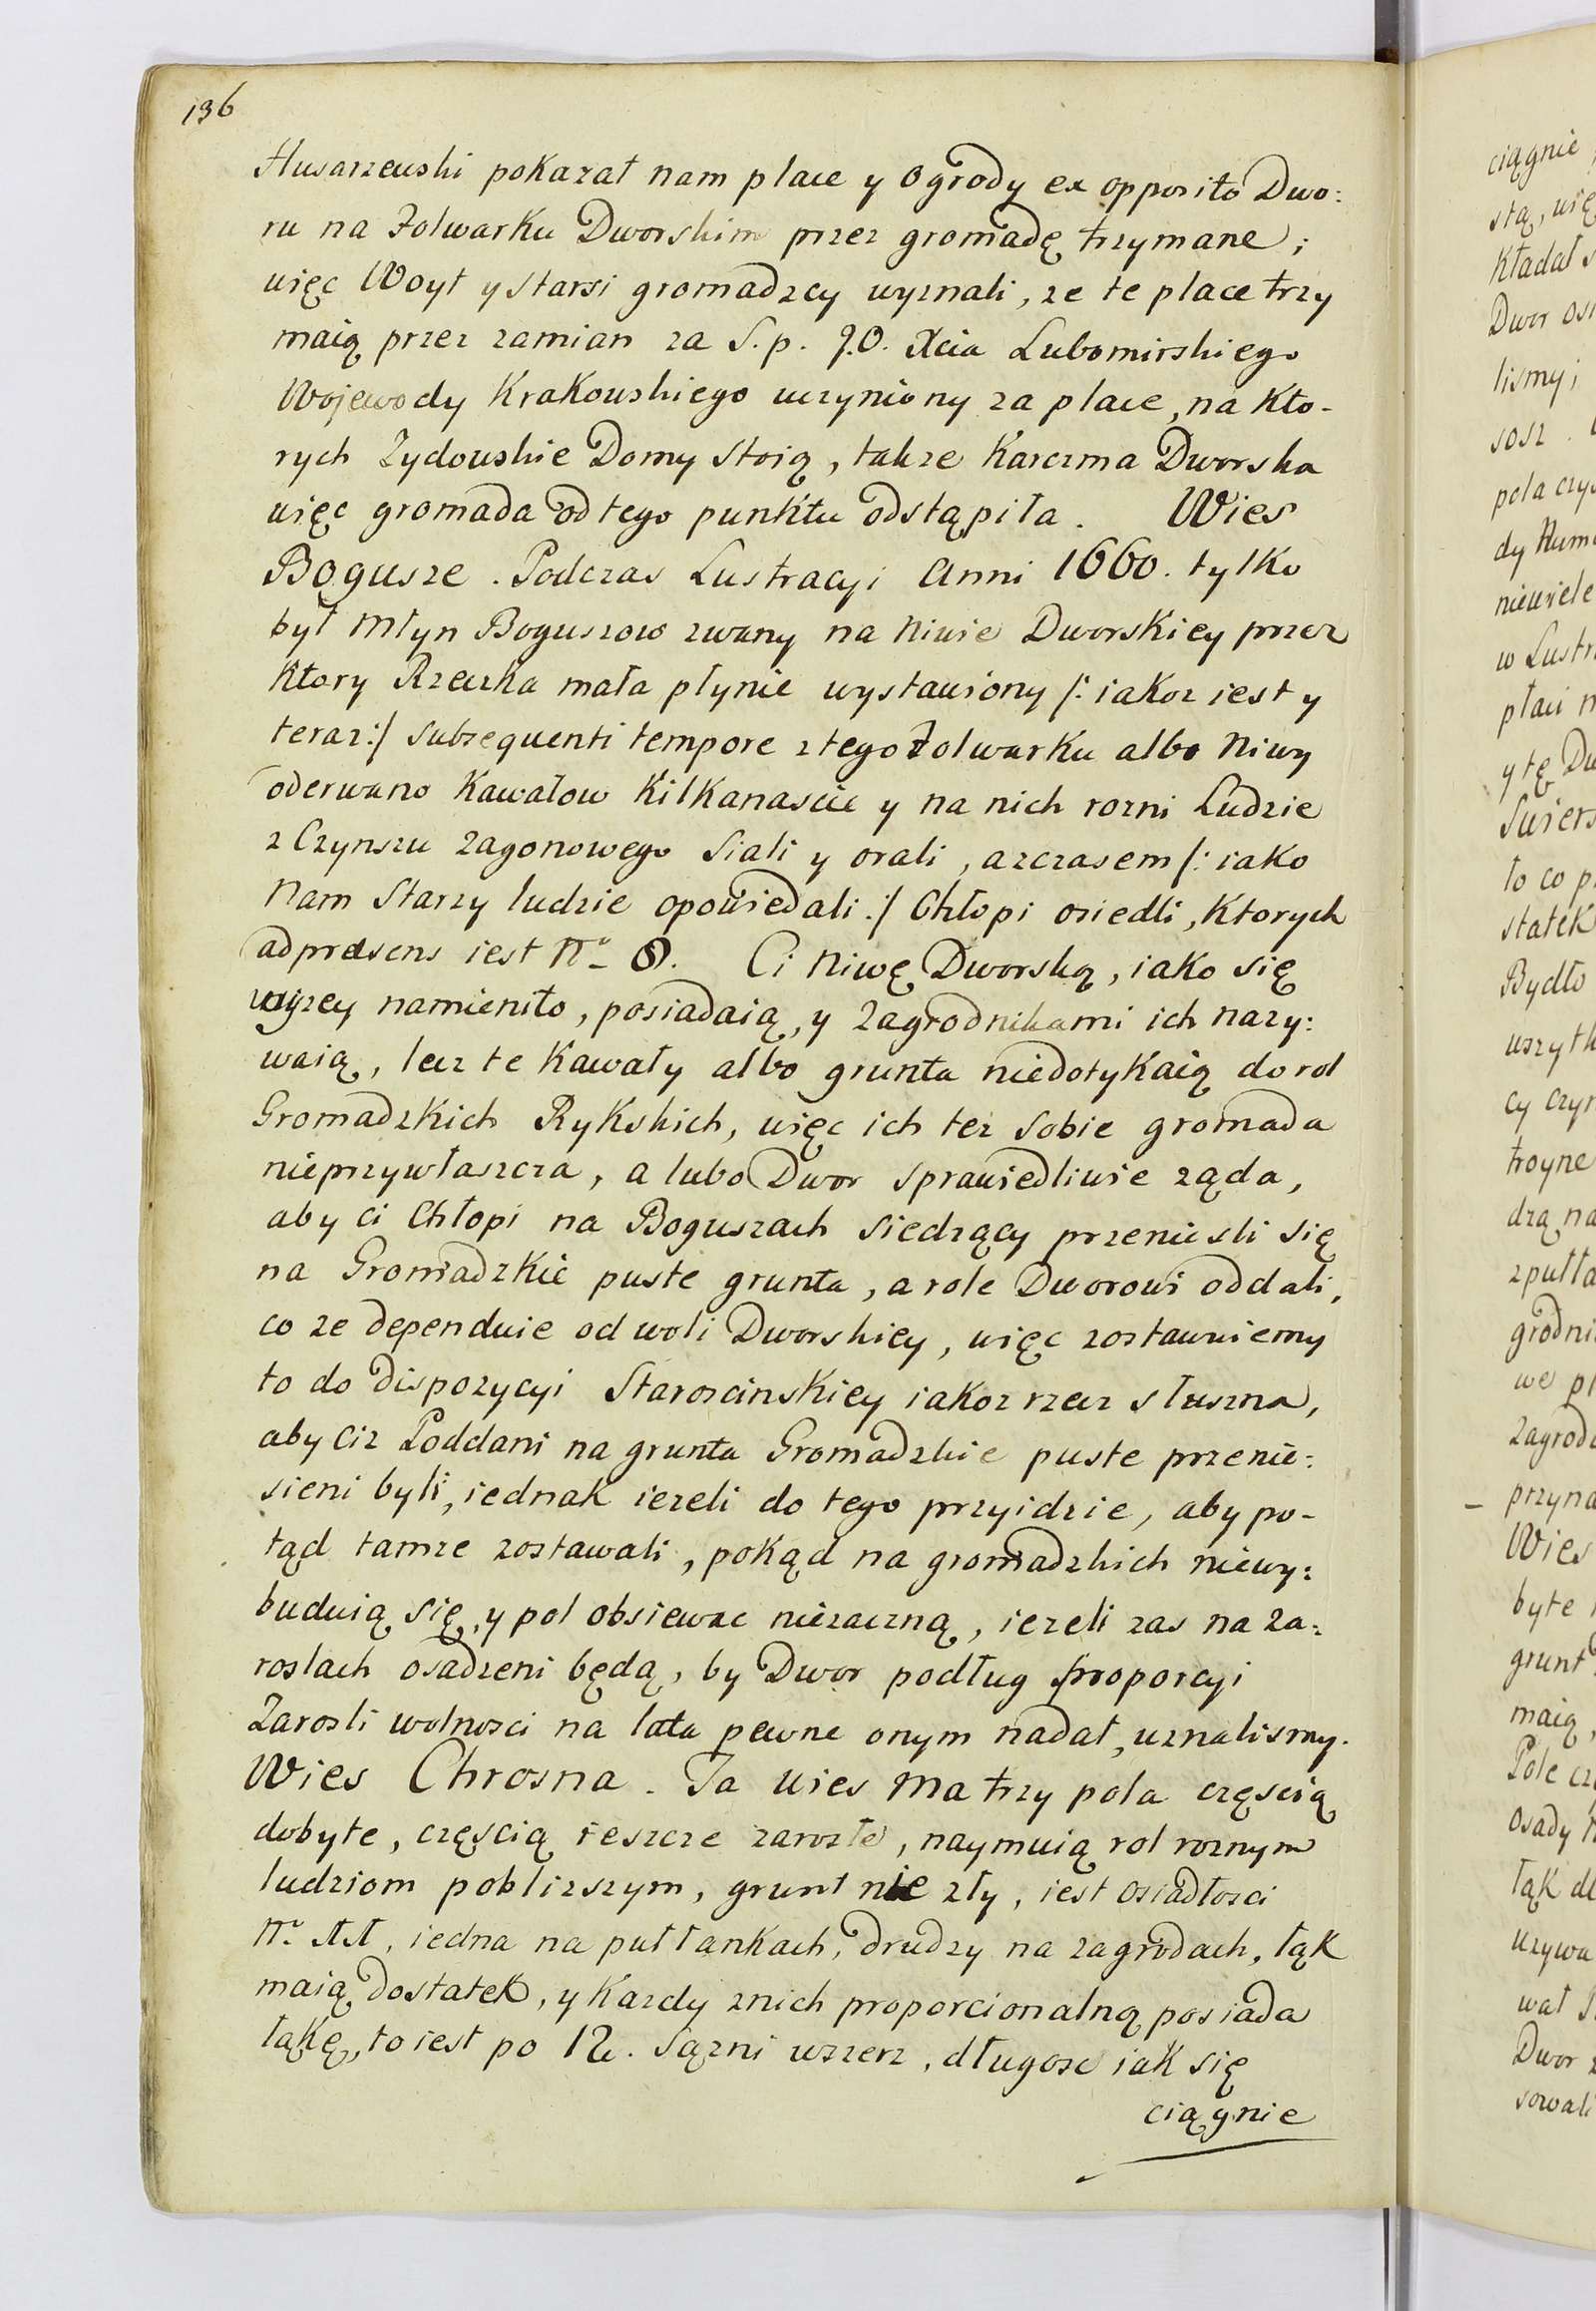 136
Husarzewski pokazał nam place y Ogrody ex opposito Dwo:
ru na Folwarku Dworskim przez gromadę trzymane;
więc Woyt y starsi gromadzcy wyznali, ze te place trzy
maią przez zamian za S. p. J.O. Xcia Lubomirskiego
Wojewody Krakowskiego uczyniony za place, na kto-
rych Zydowskie Domy stoią, takze Karczma Dworska
więc gromada od tego punktu odstąpiła. Wies
Bogusze. Podczas Lustracyi Anni 1660. tylko
był Młyn Boguszow zwany na Niwie Dworskiey przez
Ktory Rzeczka mała płynie wystawiony /: iakoz iest y
teraz :/ subsequenti tempore z tego Folwarku albo Niwy
oderwano Kawałow Kilkanascie y na nich rozni Ludzie
z Czynszu zagonowego Siali y orali, a zczasem /: iako
Nam Starzy ludzie opowiedali :/ Chłopi osiedli, Ktorych
ad præsens iest Nº 8. Ci Niwę Dworską, iako się
wyzey namieniło, posiadaią, y Zagrodnikami ich nazy:
waią, lecz te Kawały albo grunta niedotykaią do rol
Gromadzkich Rykskich, więc ich tez sobie gromada
nieprzywłaszcza, a lubo Dwor sprawiedliwie ząda,
aby ci Chłopi na Boguszach siedzący przeniesli się
na Gromadzkie puste grunta, a role Dworowi oddali,
co ze dependuie od woli Dworskiey, więc zostawuiemy
to do Dispozycyi Staroscinskiey iakoz rzecz słuszna,
aby ciz Poddani na grunta Gromadzkie puste przenie:
sieni byli, iednak iezeli do tego przyidzie, aby po-
tąd tamze zostawali, pokąd na gromadzkich niewy:
buduią się, y pol obsiewac niezaczną, iezeli zas na Za:
roslach osadzeni będą, by Dwor podług proporcyi
Zarosli wolnosci na lata pewne onym nadał, uznalismy.
Wies Chrosna. Ta wies ma trzy pola częscią
dobyte, częscią ieszcze zarosłe, naymuią rol roznym
ludziom poblizszym, grunt nie zły, iest osiadłosci
Nº 11, iedna na pułłankach, drudzy na zagrodach, łąk
maią dostatek, y kazdy znich proporcionalną posiada
łąkę, to iest po 12. sązni wszerz, długosc iak się
ciągnie
ciągnie
stą, wię
kładał s
Dwor osi
lismy;
sosz.
pola czy
dy
niewiele
w Lustr
płaci n
y tę Dw
Swiers
to co p
statek
Bydło
wszytk
cy czyn
troyne
dzą na
zpułła
grodni
we pł
Zagrod
- przyna
Wies
byte
grunt
maią,
Pole cz
Osady
łąk do
Uzywa
wał
Dwor z
sowali